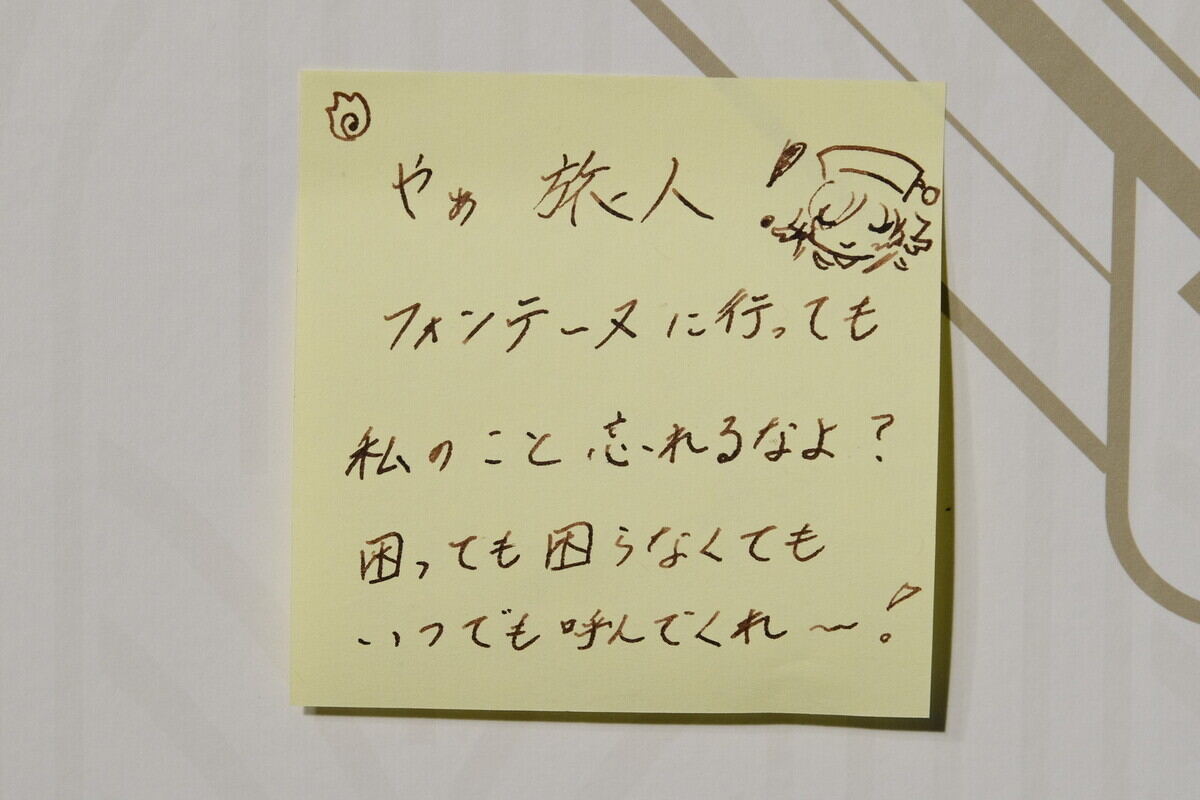 やぁ 旅人
フォンテーヌに行っても
私のこと忘れるなよ?
困っても困らなくても
いつでも呼んでくれ〜!